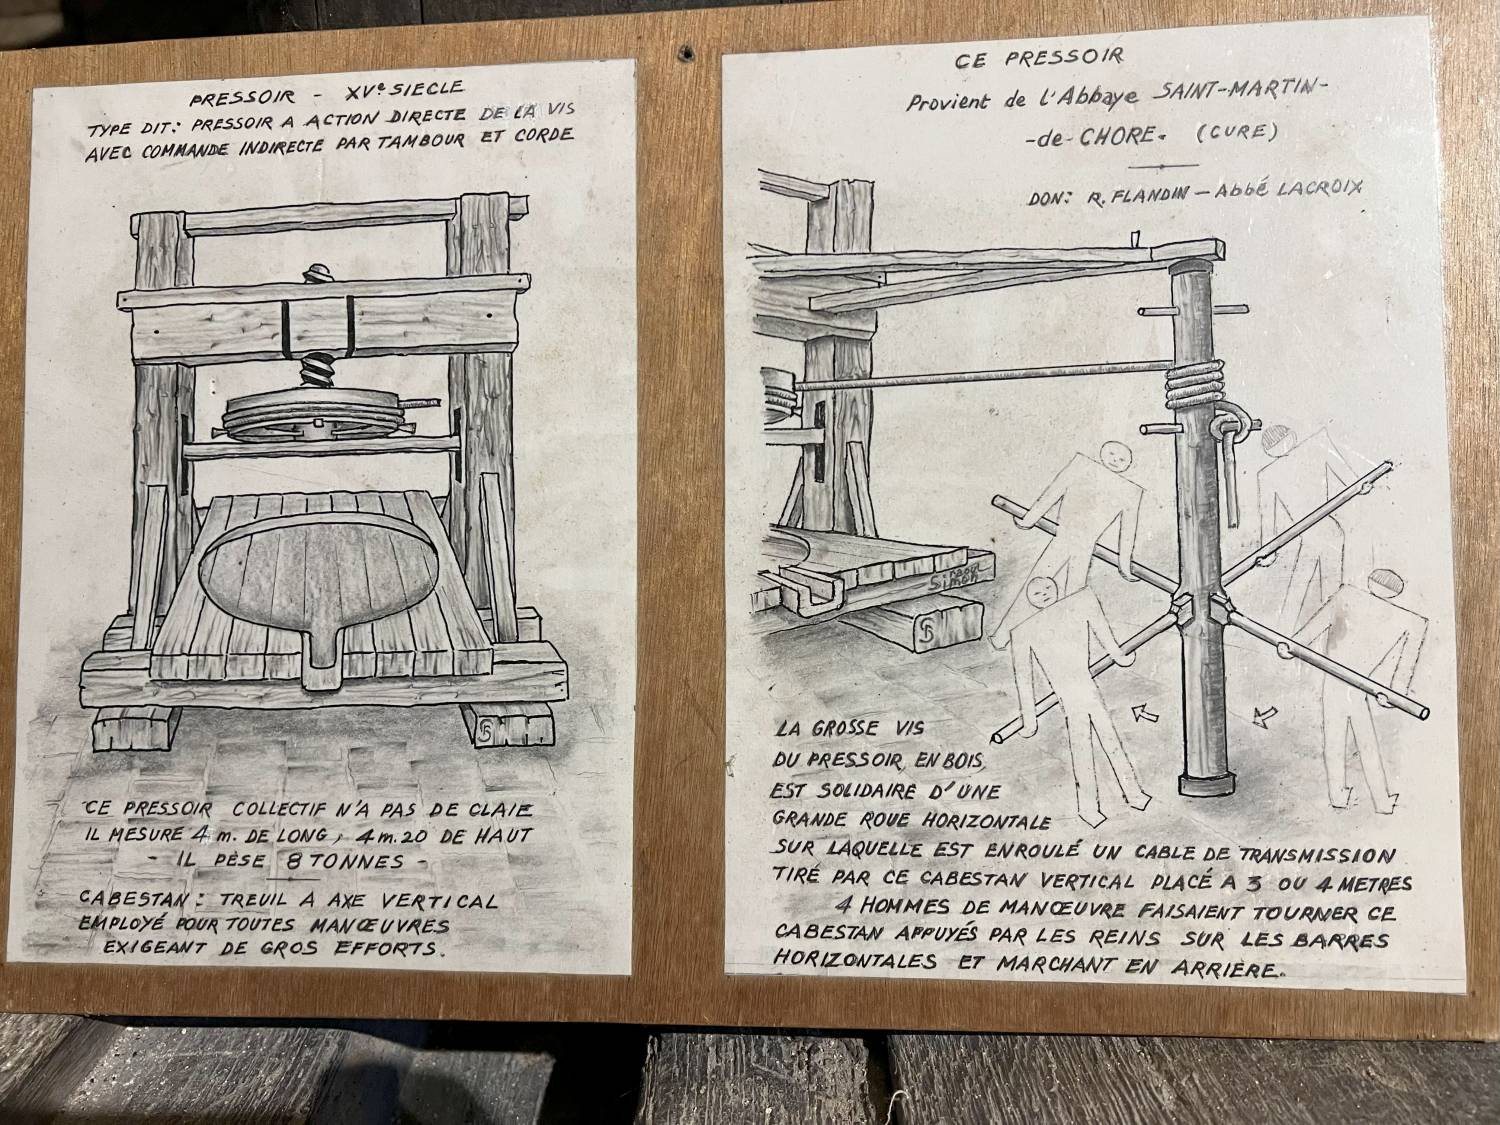 PRESSOIR - XVe SIECLE
TYPE DIT: PRESSOIR A ACTION DIRECTE DE LA VIS
AVEC COMMANDE INDIRECTE PAR TAMBOUR ET CORDE
CE PRESSOIR COLLECTIF N'A PAS DE CLAIE
IL MESURE 4 m. DE LONG, 4 m. 20 DE HAUT
- IL PÈSE 8 TONNES -
CABESTAN: TREUIL A AXE VERTICAL
EMPLOYÉ POUR TOUTES MANŒUVRES
EXIGEANT DE GROS EFFORTS.
CE PRESSOIR
Provient de l'Abbaye SAINT-MARTIN-
-de-CHORE. (CURE)
DON: R. FLANDIN - Abbé LACROIX
raoul
Simon
LA GROSSE VIS
DU PRESSOIR, EN BOIS,
EST SOLIDAIRE D'UNE
GRANDE ROUE HORIZONTALE
SUR LAQUELLE EST ENROULÉ UN CABLE DE TRANSMISSION
TIRÉ PAR CE CABESTAN VERTICAL PLACÉ A 3 OU 4 METRES
4 HOMMES DE MANŒUVRE FAISAIENT TOURNER CE
CABESTAN APPUYÉS PAR LES REINS SUR LES BARRES
HORIZONTALES ET MARCHANT EN ARRIÈRE.